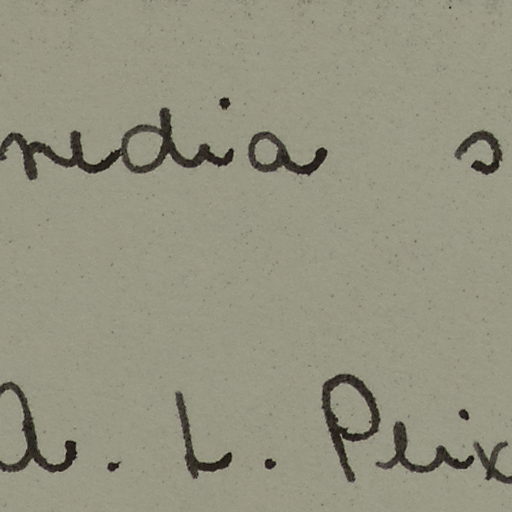 media s
A. L. Peix